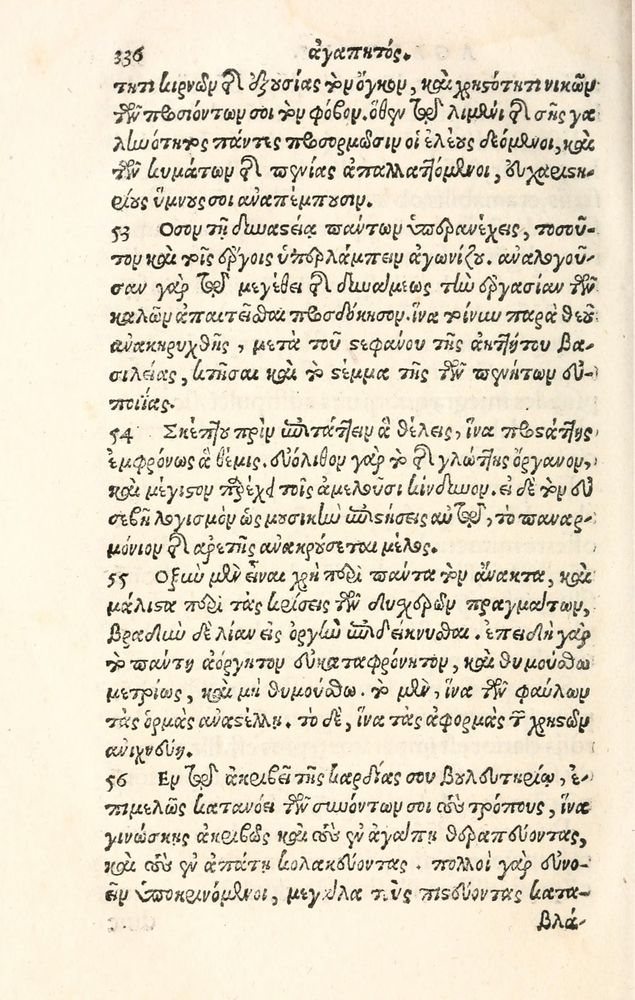 336 ἀγαπητός.
τητι κιρνῶν τῆς ἐξουσίας τὸν ὄγκον, καὶ χρηστότητι νικῶν
τῶν προσιόντων σοι τὸν φόβον. ὅθεν τῷ λιμένι τῆς σῆς γα
λιωότητος πάντες προσορμῶσιν οἱ ἐλέους δεόμενοι, καὶ
τῶν κυμάτων τῆς πενίας ἀπαλλαττόμενοι, εὐχαριστη-
ρίους ὕμνους σοι ἀναπέμπουσιν.
53 Οσον τῇ δυναστείᾳ πάντων ὑπερανέχεις, τοσοῦ-
τον καὶ τοῖς ἔργοις ὑπερλάμπειν ἀγωνίζου. ἀναλογοῦ-
σαν γὰρ τῷ μεγέθει τῆς δυνάμεως τὴν ἐργασίαν τῶν
καλῶν ἀπαιτεῖσθαι προσδόκησον. ἵνα τοίνυν παρὰ θεοῦ
ἀνακηρυχθῇς, μετὰ τοῦ στεφάνου τῆς ἀηττήτου βα-
σιλείας, κτῆσαι καὶ τὸ στέμμα τῆς τῶν πενήτων εὐ-
ποιΐας.
54 Σκέπτου πρὶν ἐπιτάττειν ἃ θέλεις, ἵνα προστάττῃς
ἐμφρόνως ἃ θέμις. εὐόλισθον γὰρ τὸ τῆς γλώττης ὄργανον,
καὶ μέγιστον παρέχει τοῖς ἀμελοῦσι κίνδυνον. εἰ δὲ τὸν εὐ
σεβῆ λογισμὸν ὡς μουσικὸν ἐπιστήσεις αὐτῷ, τὸ παναρ-
μόνιον τῆς ἀρετῆς ἀνακρούσεται μέλος.
55 Οξὺν μὲν εἶναι χρὴ περὶ πάντα τὸν ἄνακτα, καὶ
μάλιστα περὶ τὰς κρίσεις τῶν δυσχερῶν πραγμάτων,
βραδὺν δὲ λίαν εἰς ὀργὴν ἐπιδείκνυσθαι. ἐπειδὴ γὰρ
τὸ πάντη ἀόργητον εὐκαταφρόνητον, καὶ θυμούσθω
μετρίως, καὶ μὴ θυμούσθω. τὸ μὲν, ἵνα τῶν φαύλων
τὰς ὁρμὰς ἀναστέλλῃ. τὸ δὲ, ἵνα τὰς ἀφορμὰς τῶν χρηστῶν
ἀνιχνεύῃ.
56 Εν τῷ ἀκριβεῖ τῆς καρδίας σου βουλευτηρίῳ, ἐ-
πιμελῶς κατανόει τῶν συνόντων σοι τοὺς τρόπους, ἵνα
γινώσκῃς ἀκριβῶς καὶ τοὺς ἐν ἀγάπῃ θεραπεύοντας,
καὶ τοὺς ἐν ἀπάτῃ κολακεύοντας. πολλοὶ γὰρ εὐνο-
εῖν ὑποκρινόμενοι, μεγάλα τοὺς πιστεύοντας κατα-
βλά-